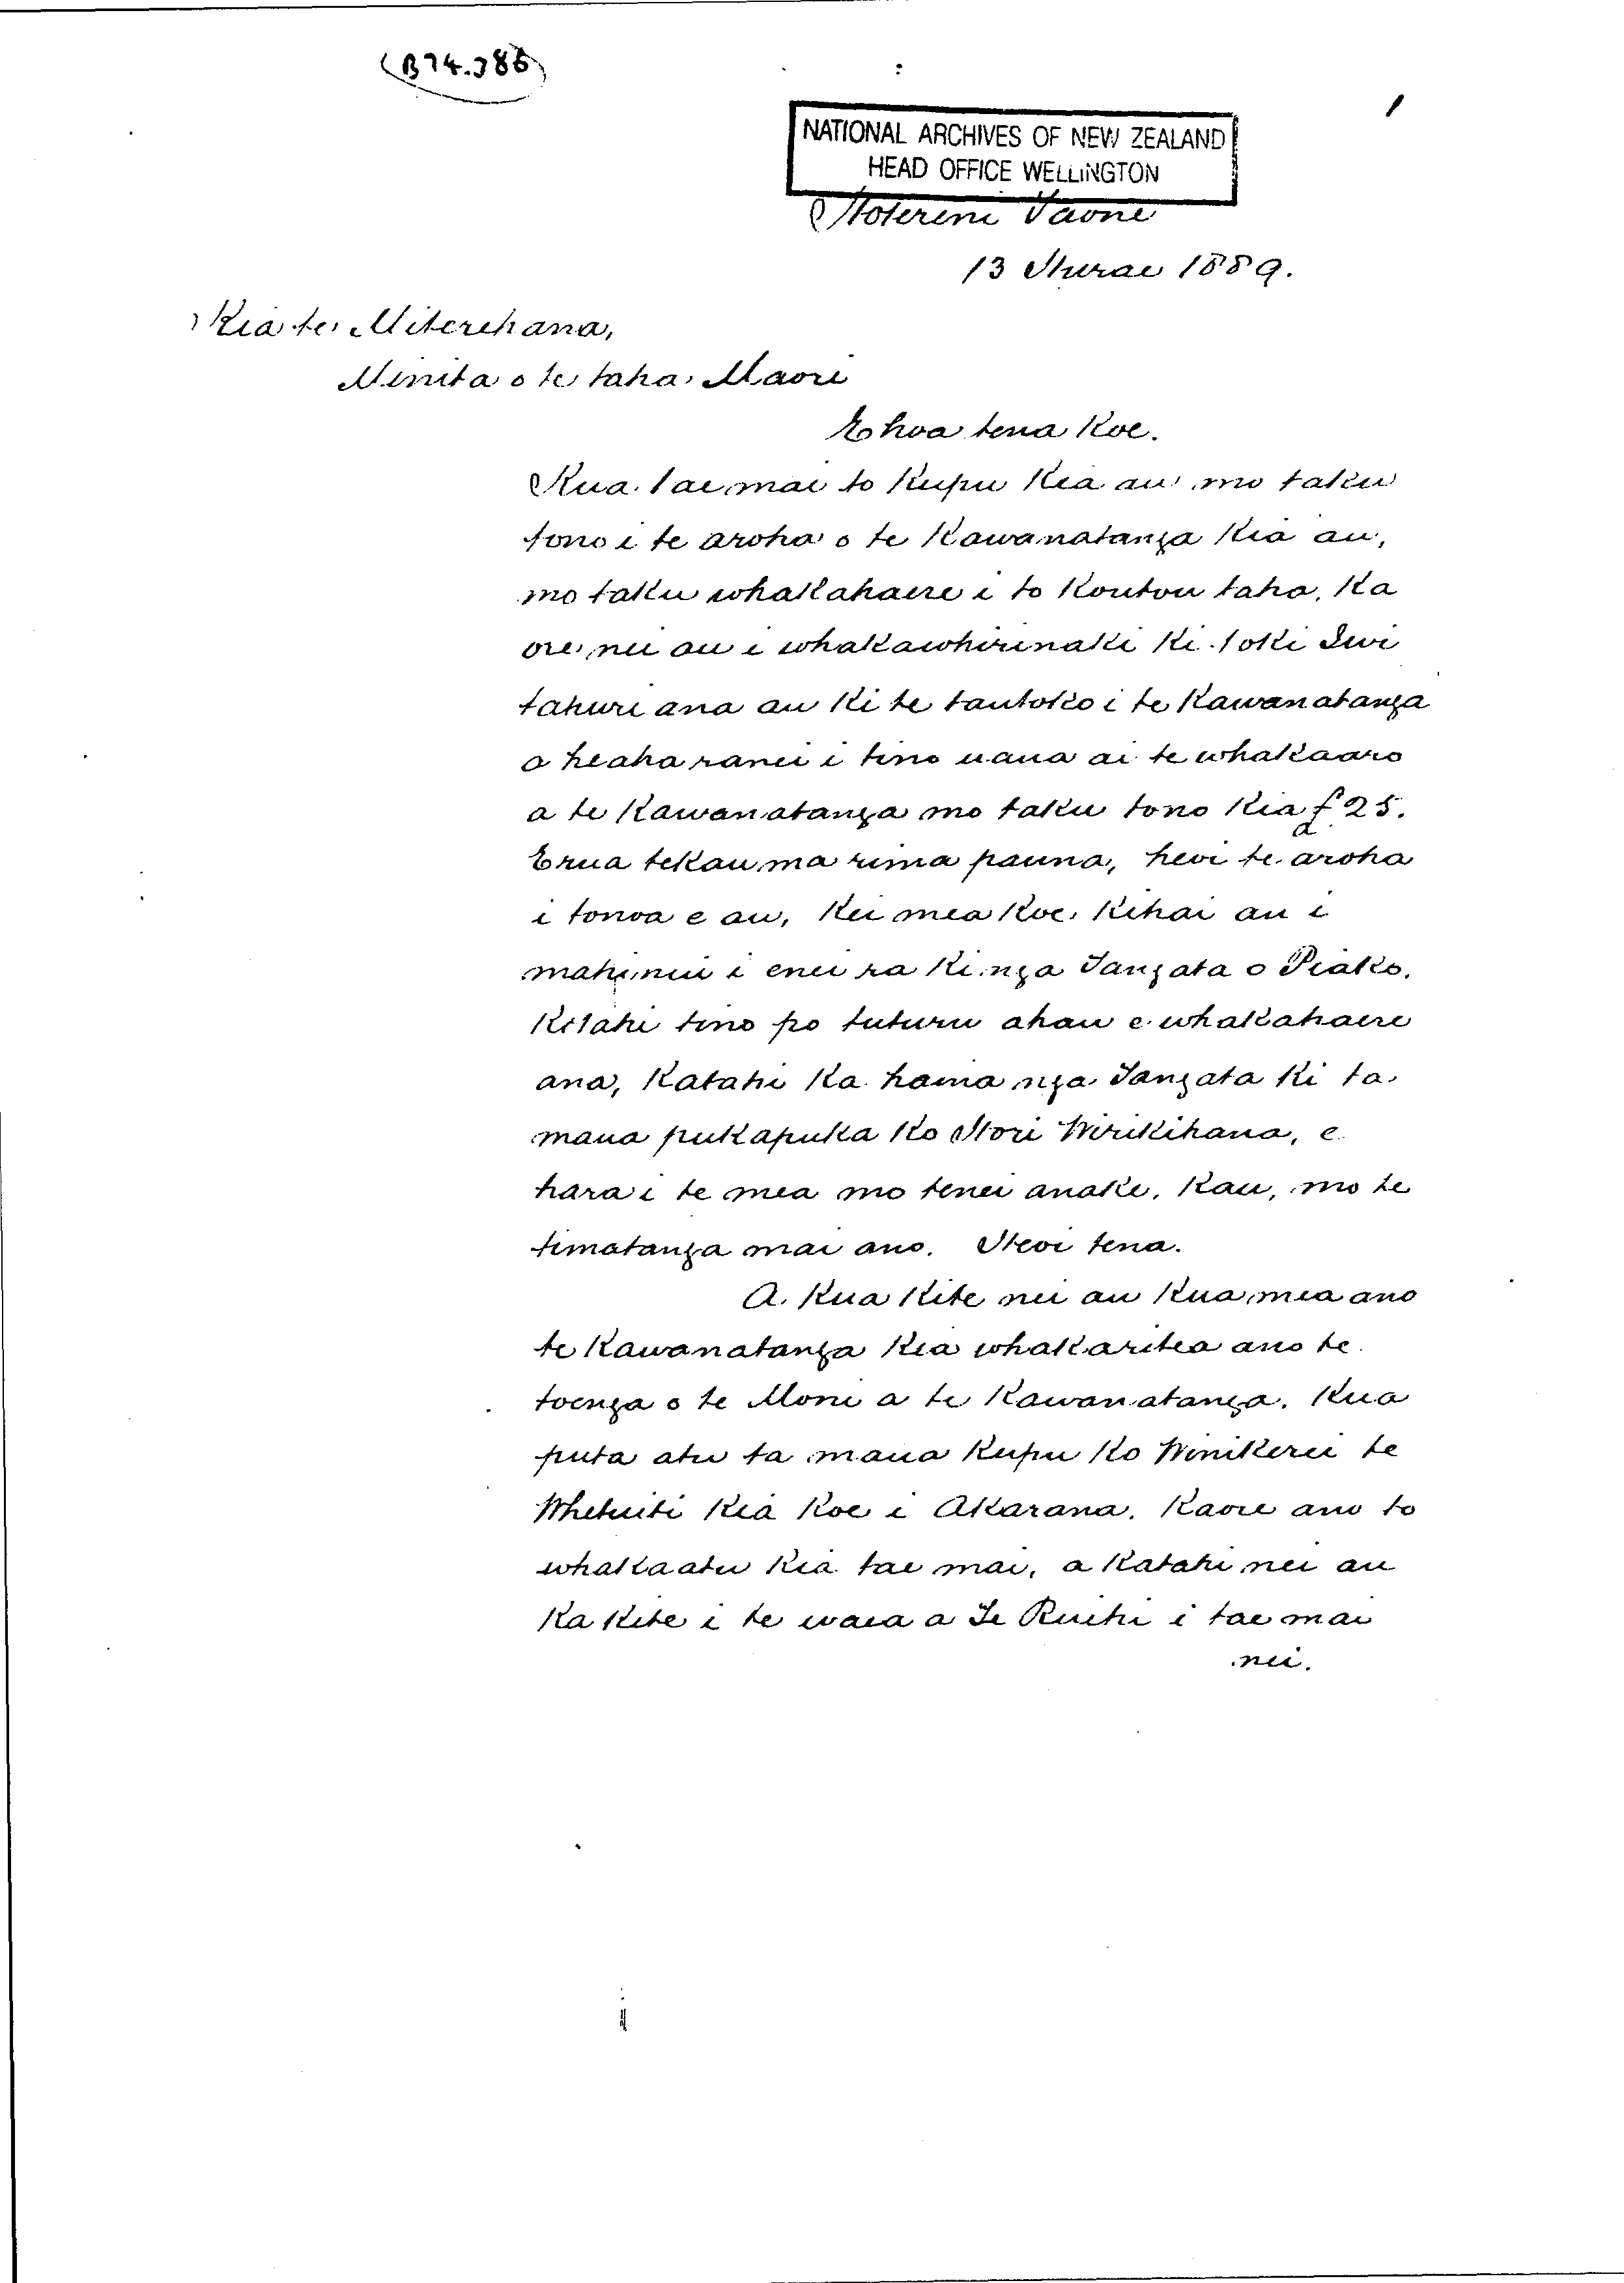 (B74.386)
1
NATIONAL ARCHIVES OF NEW ZEALAND
HEAD OFFICE WELLINGTON
Motereni Taone
13 Hurae 1889.
Kia te Miterehana,
Minita o te taha Maori
E hoa tena Koe.
Kua tae mai to Kupu Kia au mo taku
tono i te aroha o te Kawanatanga Kia au,
mo taku whakahaere i to Koutou taha, Ka
ore nei au i whakawhirinaki Ki toku Iwi
tahuri ana au Ki te tautoko i te Kawanatanga
a heaha ranei i tino uaua ai te whakaaro
a te Kawanatanga mo taku tono Kia £25.
Erua tekau ma rima pauna, hei te aroha
i tonoa e au, Kei mea Koe, Kihai au i
mahi nui i enei ra Ki nga Tangata o Piako.
Kotahi tino po tuturu ahau e whakahaere
ana, Katahi Ka haina nga Tangata Ki ta
maua pukapuka Ko Hori Wirikihana, e
hara i te mea mo tenei anake, Kau, mo te
timatanga mai ano. Heoi tena.
A. Kua Kite nei au Kua mea ano
te Kawanatanga Kia whakaritea ano te
toenga o te Moni a te Kawanatanga. Kua
puta atu ta maua Kupu Ko Winikerei te
Whetuiti Kia Koe i Akarana. Kaore ano to
whakaatu Kia tae mai, a Katahi nei au
Ka Kite i te waea a Te Ruihi i tae mai
nei.